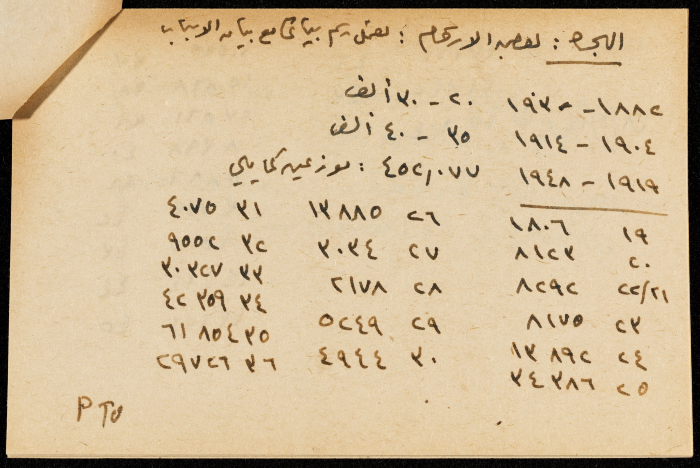 الهجرة : بعض الارقام : نعمل رسم بياني مع بيان الاسباب
١٨٨٢ – ١٩٠٣ ٢٠ – ٣٠ ألف
١٩٠٤ – ١٩١٤ ٣٥ – ٤٠ ألف
١٩١٩ – ١٩٤٨ ٤٥٢,٠٧٧ : موزعين كما يلي
١٩ ١٨٠٦ ٢٦ ١٣٨٨٥ ٣١ ٤٠٧٥
٢٠ ٨١٢٣ ٢٧ ٣٠٣٤ ٣٢ ٩٥٥٢
٢١/٢٢ ٨٢٩٢ ٢٨ ٢١٧٨ ٣٣ ٣٠٣٢٧
٢٣ ٨١٧٥ ٢٩ ٥٢٤٩ ٣٤ ٤٢٣٥٩
٢٤ ١٣٨٩٢ ٣٠ ٤٩٤٤ ٣٥ ٦١٨٥٤
٢٥ ٣٤٣٨٦ ٣٦ ٢٩٧٢٦
PTO